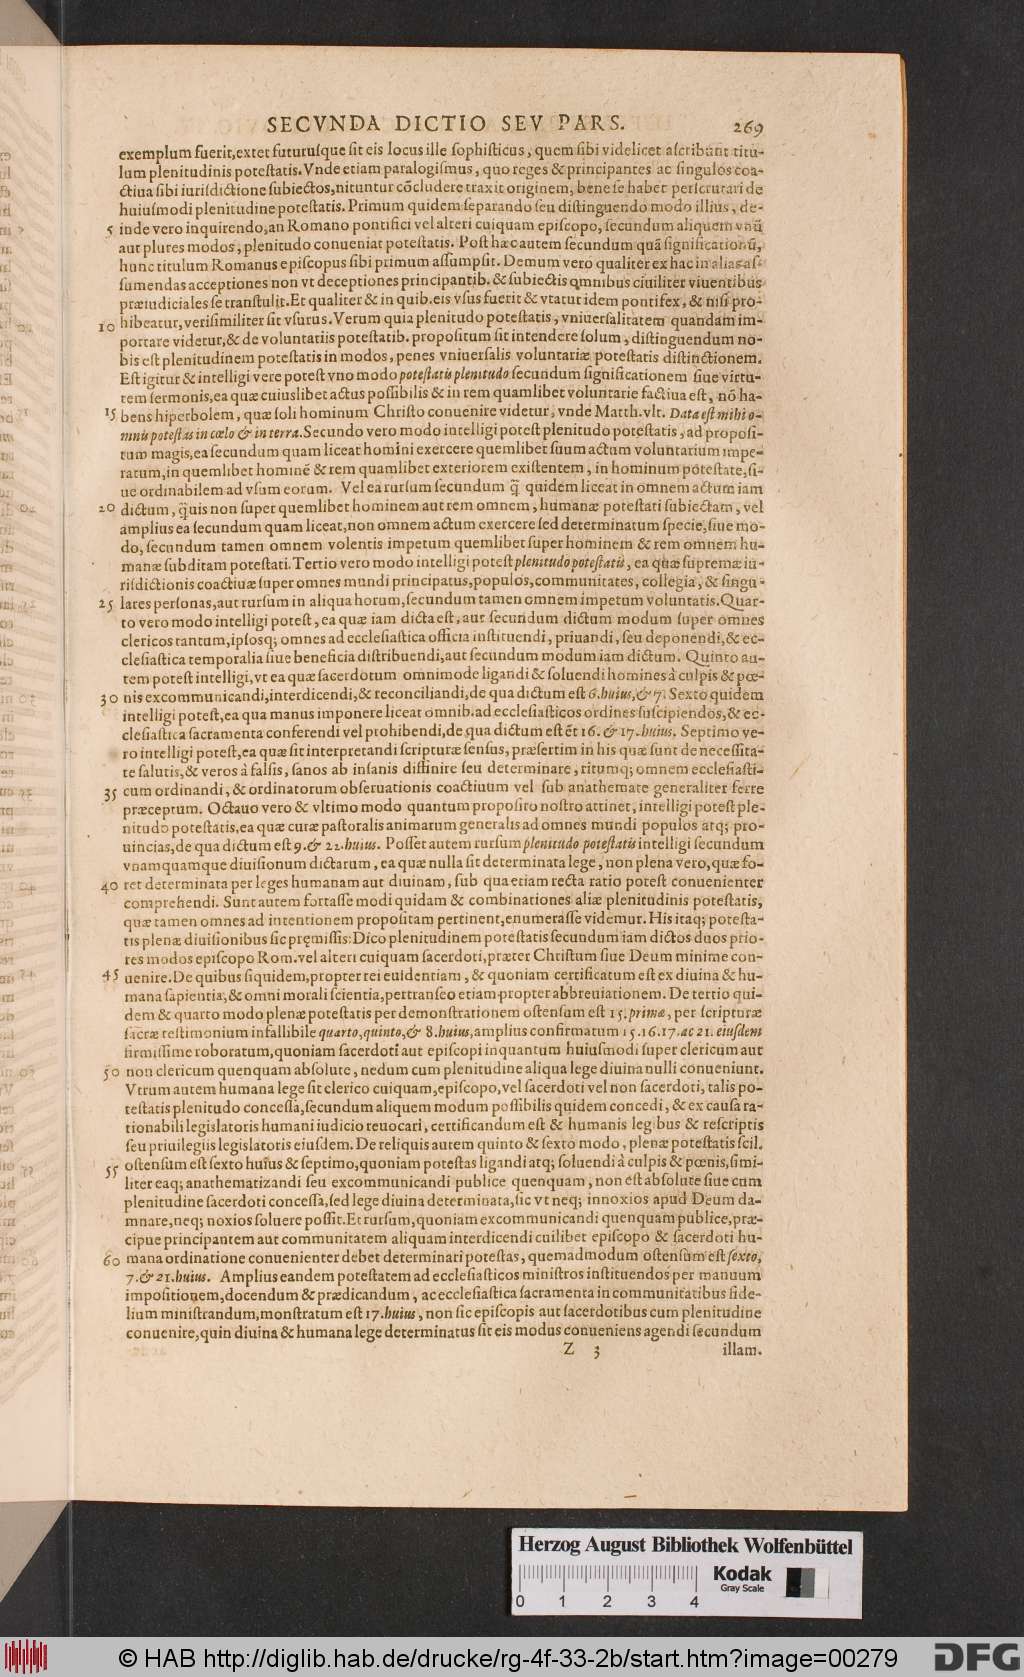 SECVNDA DICTIO SEV PARS. 269
exemplum fuerit, extet futurusque sit eis locus ille sophisticus, quem sibi videlicet ascribunt titu-
lum plenitudinis potestatis. Vnde etiam paralogismus, quo reges & principantes ac singulos coa-
ctiua sibi iurisdictione subiectos, nituntur cõcludere traxit originem, bene se habet perscrutari de
huiusmodi plenitudine potestatis. Primum quidem separando seu distinguendo modo illius, de-
5 inde vero inquirendo, an Romano pontifici vel alteri cuiquam episcopo, secundum aliquem vnũ
aut plures modos, plenitudo conueniat potestatis. Post hæc autem secundum quã significationũ,
hunc titulum Romanus episcopus sibi primum assumpsit. Demum vero qualiter ex hac in alias as-
sumendas acceptiones non vt deceptiones principantib. & subiectis omnibus ciuiliter viuentibus
præiudiciales se transtulit. Et qualiter & in quib. eis vsus fuerit & vtatur idem pontifex, & nisi pro-
10 hibeatur, verisimiliter sit vsurus. Verum quia plenitudo potestatis, vniuersalitatem quandam im-
portare videtur, & de voluntariis potestatib. propositum sit intendere solum, distinguendum no-
bis est plenitudinem potestatis in modos, penes vniuersalis voluntariæ potestatis distinctionem.
Est igitur & intelligi vere potest vno modo potestatis plenitudo secundum significationem siue virtu-
tem sermonis, ea quæ cuiuslibet actus possibilis & in rem quamlibet voluntarie factiua est, nõ ha-
15 bens hiperbolem, quæ soli hominum Christo conuenire videtur, vnde Matth. vlt. Data est mihi o-
mnis potestas in cœlo & in terra. Secundo vero modo intelligi potest plenitudo potestatis, ad proposi-
tum magis, ea secundum quam liceat homini exercere quemlibet suum actum voluntarium impe-
ratum, in quemlibet hominẽ & rem quamlibet exteriorem existentem, in hominum potestate, si-
ue ordinabilem ad vsum eorum. Vel ea rursum secundum q̃ quidem liceat in omnem actum iam
20 dictum, q̃uis non super quemlibet hominem aut rem omnem, humanæ potestati subiectam, vel
amplius ea secundum quam liceat, non omnem actum exercere sed determinatum specie, siue mo-
do, secundum tamen omnem volentis impetum quemlibet super hominem & rem omnem hu-
manæ subditam potestati. Tertio vero modo intelligi potest plenitudo potestatis, ea quæ supremæ iu-
risdictionis coactiuæ super omnes mundi principatus, populos, communitates, collegia, & singu-
25 lares personas, aut rursum in aliqua horum, secundum tamen omnem impetum voluntatis. Quar-
to vero modo intelligi potest, ea quæ iam dicta est, aut secundum dictum modum super omnes
clericos tantum, ipsosq; omnes ad ecclesiastica officia instituendi, priuandi, seu deponendi, & ec-
clesiastica temporalia siue beneficia distribuendi, aut secundum modum iam dictum. Quinto au-
tem potest intelligi, vt ea quæ sacerdotum omnimode ligandi & soluendi homines à culpis & pœ-
30 nis excommunicandi, interdicendi, & reconciliandi, de qua dictum est 6. huius, & 7. Sexto quidem
intelligi potest, ea qua manus imponere liceat omnib. ad ecclesiasticos ordines suscipiendos, & ec-
clesiastica sacramenta conferendi vel prohibendi, de qua dictum est ẽt 16. & 17. huius. Septimo ve-
ro intelligi potest, ea quæ sit interpretandi scripturæ sensus, præsertim in his quæ sunt de necessita-
te salutis, & veros à falsis, sanos ab insanis distinire seu determinare, ritumq; omnem ecclesiasti-
35 cum ordinandi, & ordinatorum obseruationis coactiuum vel sub anathemate generaliter ferre
præceptum. Octauo vero & vltimo modo quantum proposito nostro attinet, intelligi potest ple-
nitudo potestatis, ea quæ curæ pastoralis animarum generalis ad omnes mundi populos atq; pro-
uincias, de qua dictum est 9. & 22. huius. Posset autem rursum plenitudo potestatis intelligi secundum
vnamquamque diuisionum dictarum, ea quæ nulla sit determinata lege, non plena vero, quæ fo-
40 ret determinata per leges humanam aut diuinam, sub qua etiam recta ratio potest conuenienter
comprehendi. Sunt autem fortasse modi quidam & combinationes aliæ plenitudinis potestatis,
quæ tamen omnes ad intentionem propositam pertinent, enumerasse videmur. His itaq; potesta-
tis plenæ diuisionibus sic pręmissis: Dico plenitudinem potestatis secundum iam dictos duos prio-
res modos episcopo Rom. vel alteri cuiquam sacerdoti, præter Christum siue Deum minime con-
45 uenire. De quibus siquidem, propter rei euidentiam, & quoniam certificatum est ex diuina & hu-
mana sapientia, & omni morali scientia, pertranseo etiam propter abbreuiationem. De tertio qui-
dem & quarto modo plenæ potestatis per demonstrationem ostensum est 15. primæ, per scripturæ
sacræ testimonium infallibile quarto, quinto, & 8. huius, amplius confirmatum 15. 16. 17. ac 21. eiusdem
firmissime roboratum, quoniam sacerdoti aut episcopi inquantum huiusmodi super clericum aut
50 non clericum quenquam absolute, nedum cum plenitudine aliqua lege diuina nulli conueniunt.
Vtrum autem humana lege sit clerico cuiquam, episcopo, vel sacerdoti vel non sacerdoti, talis po-
testatis plenitudo concessa, secundum aliquem modum possibilis quidem concedi, & ex causa ra-
tionabili legislatoris humani iudicio reuocari, certificandum est & humanis legibus & rescriptis
seu priuilegiis legislatoris eiusdem. De reliquis autem quinto & sexto modo, plenæ potestatis scil.
55 ostensum est sexto huius & septimo, quoniam potestas ligandi atq; soluendi à culpis & pœnis, simi-
liter eaq; anathematizandi seu excommunicandi publice quenquam, non est absolute siue cum
plenitudine sacerdoti concessa, sed lege diuina determinata, sic vt neq; innoxios apud Deum da-
mnare, neq; noxios soluere possit. Et rursum, quoniam excommunicandi quenquam publice, præ-
cipue principantem aut communitatem aliquam interdicendi cuilibet episcopo & sacerdoti hu-
60 mana ordinatione conuenienter debet determinari potestas, quemadmodum ostensum est sexto,
7. & 21. huius. Amplius eandem potestatem ad ecclesiasticos ministros instituendos per manuum
impositionem, docendum & prædicandum, ac ecclesiastica sacramenta in communitatibus fide-
lium ministrandum, monstratum est 17. huius, non sic episcopis aut sacerdotibus cum plenitudine
conuenire, quin diuina & humana lege determinatus sit eis modus conueniens agendi secundum
Z 3 illam.
Herzog August Bibliothek Wolfenbüttel
Kodak
Gray Scale
0 1 2 3 4
© HAB http://diglib.hab.de/drucke/rg-4f-33-2b/start.htm?image=00279
DFG